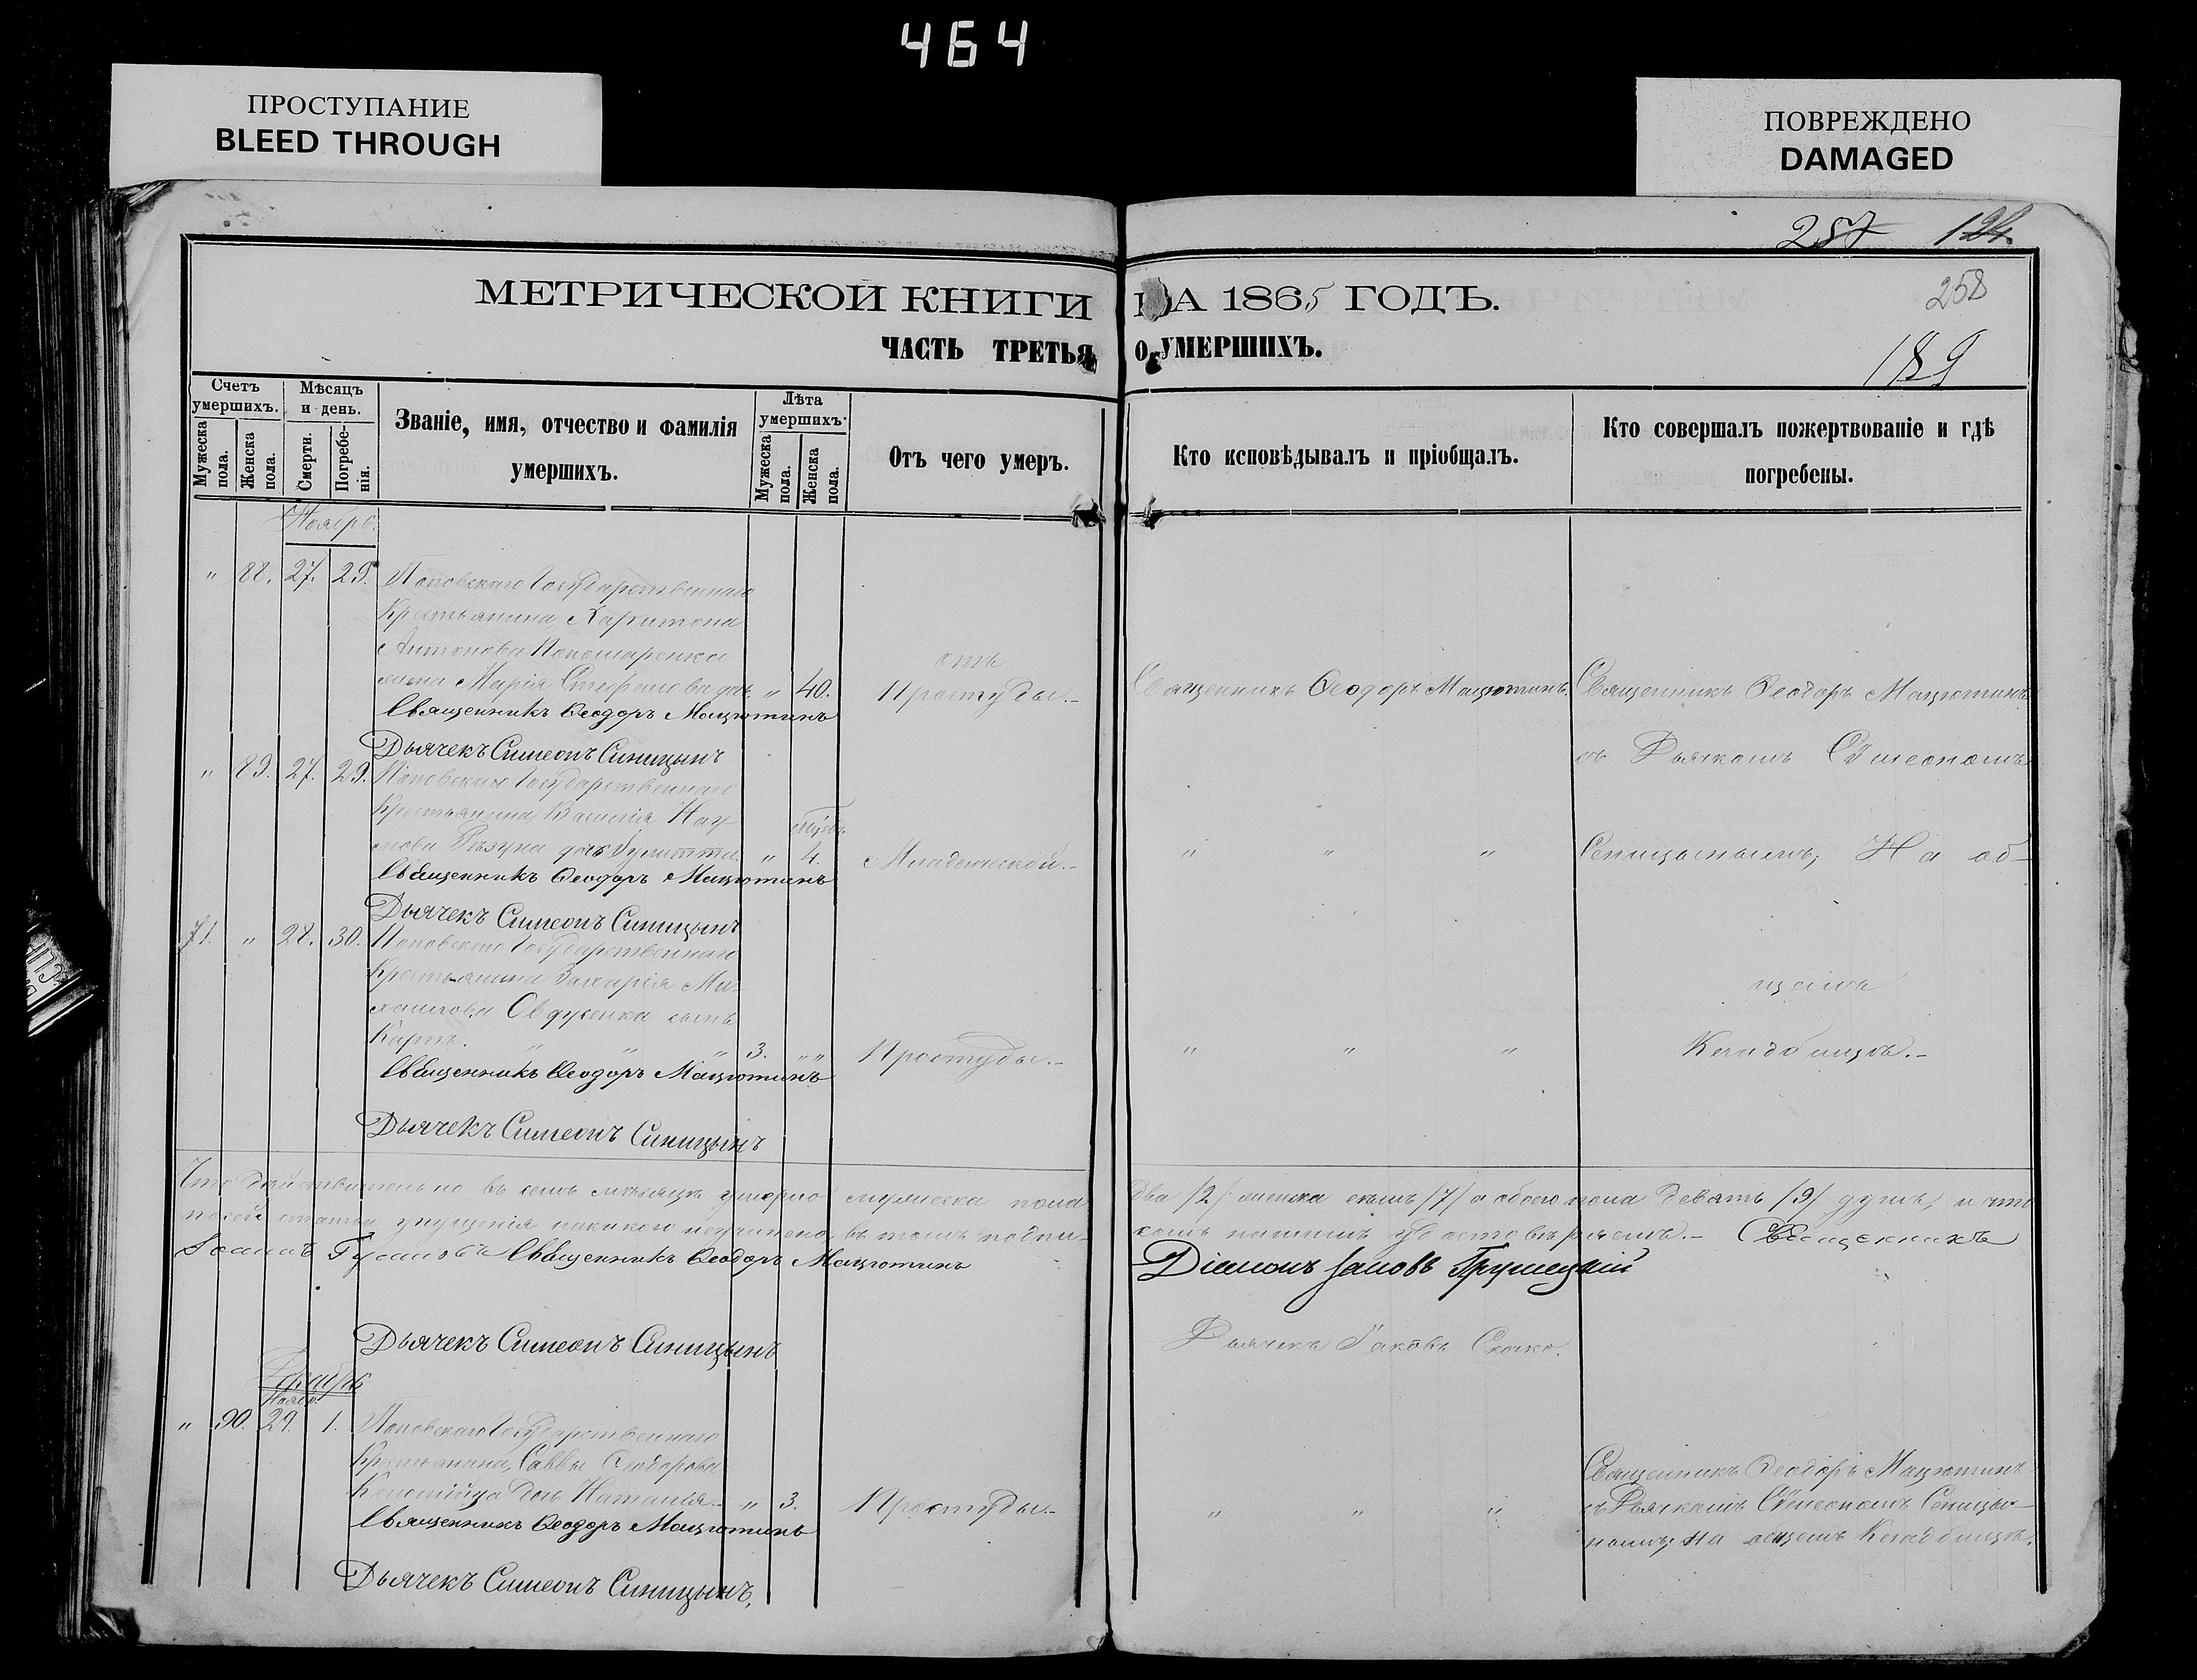 464
ПРОСТУПАНИЕ
BLEED THROUGH
ПОВРЕЖДЕНО
DAMAGED
287 124
258
189
МЕТРИЧЕСКОЙ КНИГИ НА 1865 ГОДЪ.
ЧАСТЬ ТРЕТЬЯ О УМЕРШИХЪ.
Счетъ умершихъ.
Мужеска пола.
Женска пола.
Мѣсяцъ и день.
Смерти.
Погребе-нія.
Званіе, имя, отчество и фамилія
умершихъ.
Лѣта умершихъ.
Мужеска пола.
Женска пола.
Отъ чего умеръ.
Кто исповѣдывалъ и пріобщалъ.
Кто совершалъ пожертвованіе и гдѣ
погребены.
Ноябрь.
" 88. 27. 29. Поповскаго Государственнаго
Крестьянина Харитона
Антонова Пономаренка
жена Марія Стефанова дочь. " 40.
отъ
Простуды.-
Священникъ Ѳеодоръ Мацютинъ.
Священникъ Ѳеодоръ Мацютинъ
Священникъ Ѳеодоръ Мацютинъ
Дьячекъ Симеонъ Синицынъ
съ Дьячкомъ Сѵмеономъ
" 89. 27. 29. Поповскаго Государственнаго
Крестьянина Василія Нау-
мова дочь " 4.
Младенческой.-
" " "
Сеницынымъ, На об-
Священникъ Ѳеодоръ Мацютинъ
Дьячекъ Симеонъ Синицынъ
71. " 28. 30. Поповскаго Государственнаго
Крестьянина Захарія Ми-
хаилова Овдуенка сынъ
Карпъ. " " " 3. " "
Простуды.-
" " "
щемъ
Кладбищѣ.-
Священникъ Ѳеодоръ Мацютинъ
Дьячекъ Симеонъ Синицынъ
Что дѣйствительно въ семъ мѣсяцѣ умерло мужеска пола два /2/ женска семь /7/ а обоего пола девять /9/ душъ, и что
по сей статьи упущенія никакого неучинено, въ томъ подпи- сомъ нашимъ удостовѣряемъ.- Священникъ
Іоаннъ Священникъ Ѳеодоръ Мацютинъ
Діаконъ Іаковъ Грушецкій
Дьячекъ Симеонъ Синицынъ
Дьячекъ Іаковъ
Декабрь
Нояб.
" 90. 29. 1. Поповскаго Государственнаго
Крестьянина Саввы Ѳеодорова
дочь Наталія.- " 3.
Простуды.-
" " "
Священникъ Ѳеодоръ Мацютинъ
съ Дьячкомъ Сѵмеономъ Сеницы-
нымъ, на общемъ Кладбищѣ.
Священникъ Ѳеодоръ Мацютинъ
Дьячекъ Симеонъ Синицынъ.